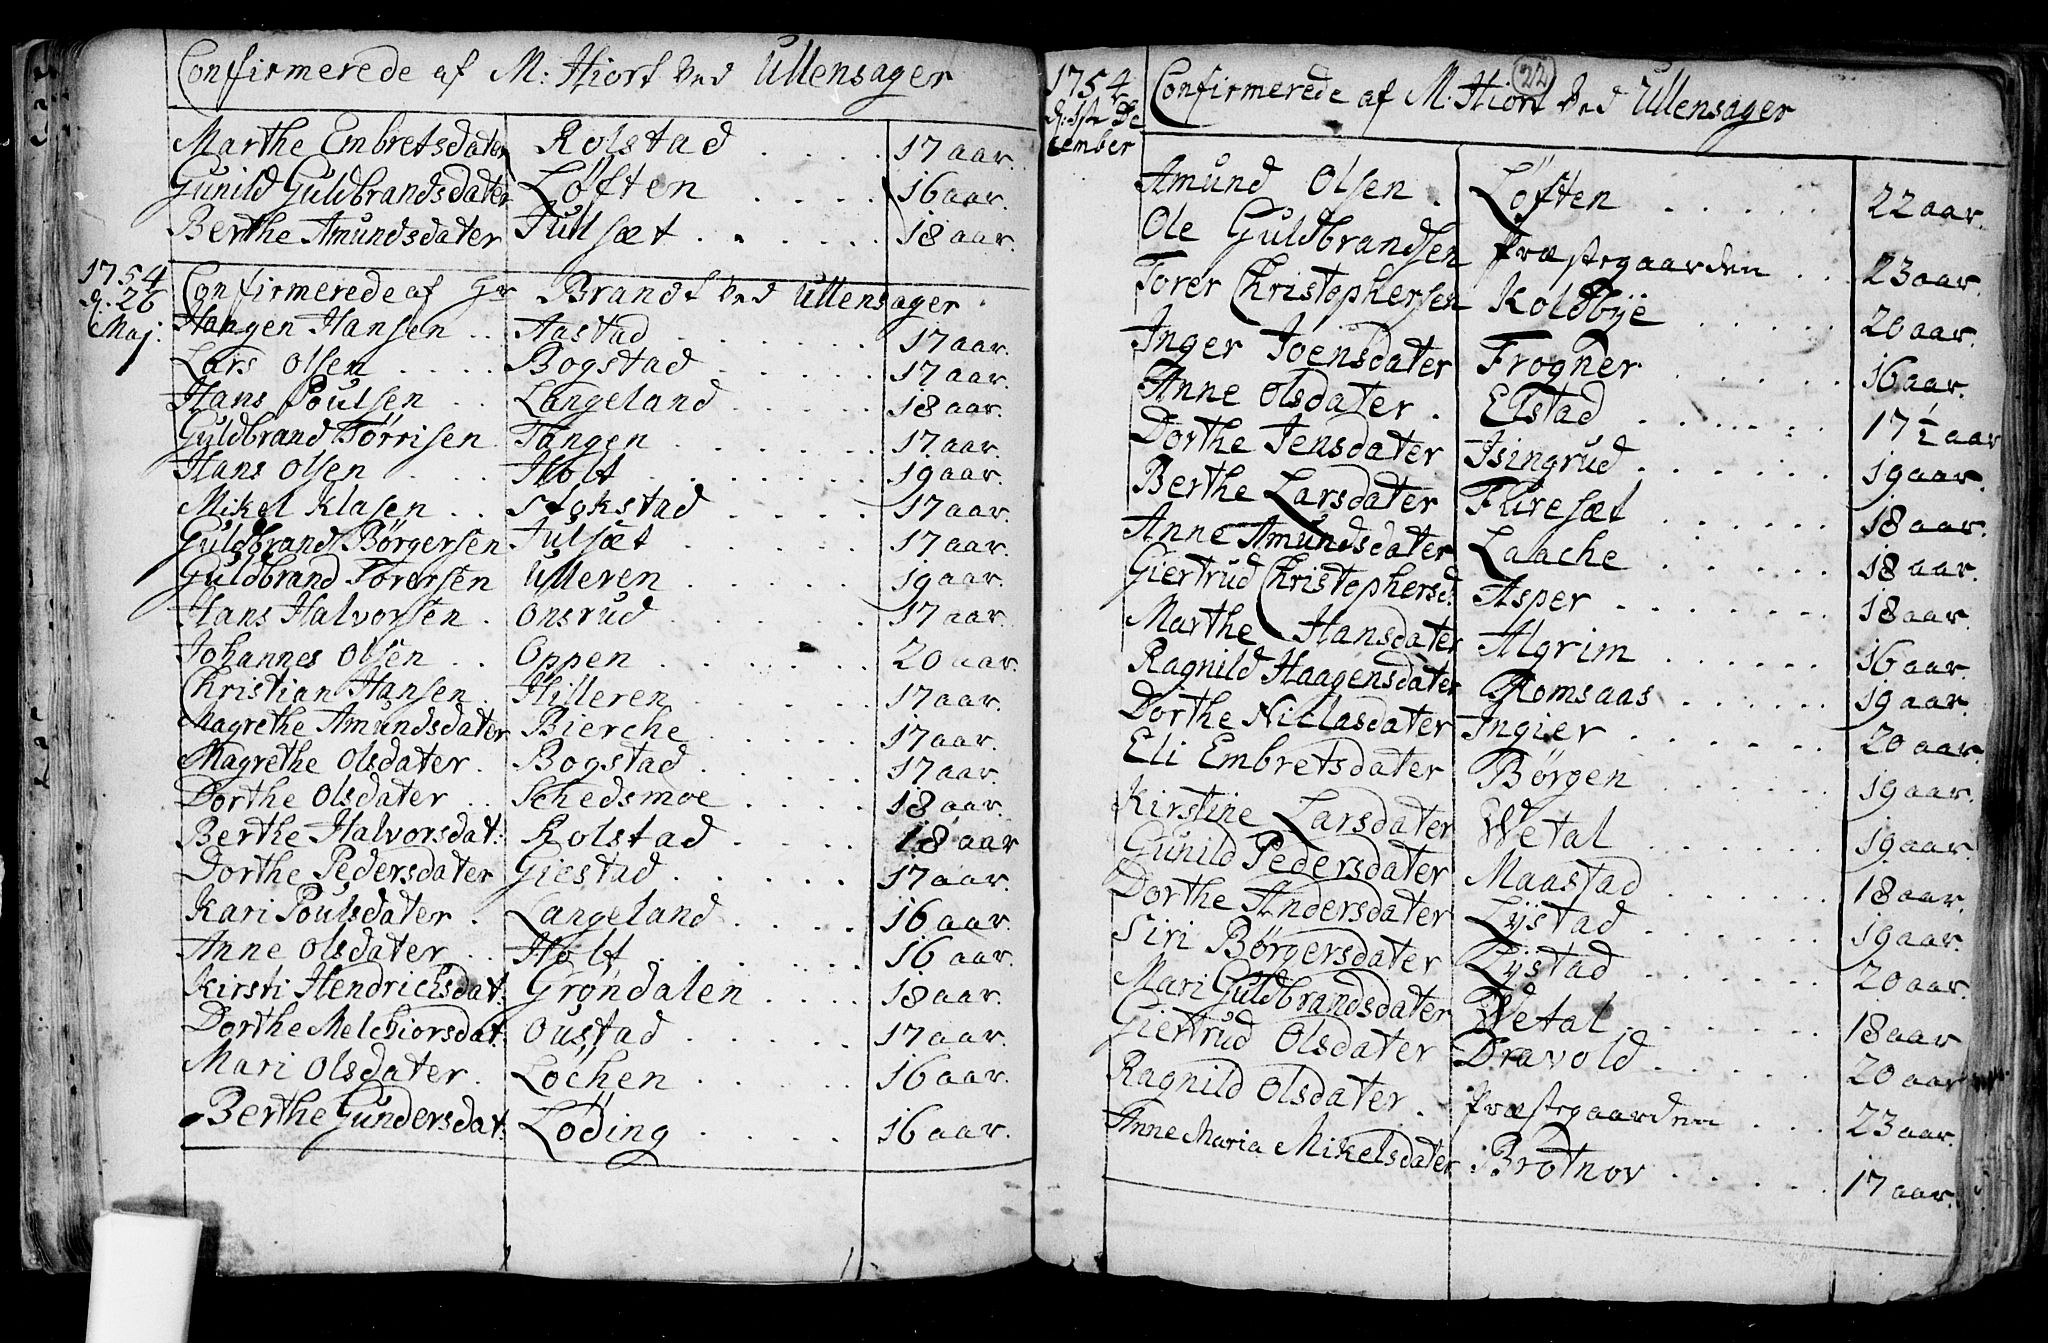 Confirmerede af M: Hiort ved Ullensager
Marthe Embretsdater Rolstad .... 17 aar.
Gunild Guldbrandsdater Løften .... 16 aar.
Berthe Amundsdater Julsæt .... 18 aar.
1754 d. 26 Maj. Confirmerede af Hr Brandt ved Ullensager
Hangen Hansen .. Aastad ...... 17 aar.
Lars Olsen .... Bogstad ..... 17 aar.
Hans Poulsen .. Langeland ..... 18 aar.
Guldbrand Tørrisen Tangen ...... 17 aar.
Hans Olsen .... Holt ....... 19 aar.
Mikel Klasen .. Stokstad .... 17 aar.
Guldbrand Børgersen Julsæt ..... 17 aar.
Guldbrand Torersen Ulleren ..... 19 aar.
Hans Halvorsen . Onsrud ...... 17 aar.
Johannes Olsen .. Oppen ...... 20 aar.
Christian Hansen . Hilleren ...... 17 aar.
Magrethe Amundsdater Bierche ..... 17 aar.
Magrethe Olsdater . Bogstad ..... 17 aar.
Dorthe Olsdater .. Schedsmoe .... 18 aar.
Berthe Halvorsdat: Rolstad .... 18 aar
Dorthe Pedersdater Giestad ..... 17 aar.
Kari Poulsdater . Langeland .... 16 aar.
Anne Olsdater .. Holt ...... 16 aar.
Kirsti Hendrichsdat: Grøndalen .... 18 aar.
Dorthe Melchiorsdat: Oustad ..... 17 aar.
Mari Olsdater . Lochen ..... 16 aar.
Berthe Gundersdat: Løding .... 16 aar.
22
1754 d. 1ste December Confirmerede af M. Hiort ved Ullensager
Amund Olsen . Løften ..... 22 aar.
Ole Guldbrandsen Præstegaarden .. 23 aar.
Torer Christophersen Koldbye ..... 20 aar.
Inger Joensdater Frogner ..... 16 aar.
Anne Olsdater . Elstad ...... 17 1/2 aar
Dorthe Jensdater Isingrud ...... 19 aar.
Berthe Larsdater Fluresæt ..... 18 aar.
Anne Amundsdater Laache ..... 18 aar.
Giertrud Christophersd: Asper ...... 18 aar.
Marthe Hansdater Algrim ..... 16 aar.
Ragnild Haagensdater Romsaas ..... 19 aar.
Dorthe Niclasdater Ingier ...... 20 aar.
Eli Embretsdater Børgen ...... 19 aar.
Kirstine Larsdater Wetal ...... 19 aar.
Gunild Pedersdater Maastad ..... 18 aar.
Dorthe Andersdater Lystad ..... 19 aar.
Siri Børgersdater Lystad ..... 20 aar.
Mari Guldbrandsdater Wetal ...... 18 aar
Giertrud Olsdater Dravold ..... 20 aar
Ragnild Olsdater . Præstegaarden ... 23 aar.
Anne Maria Mikelsdater : Brotnov ..... 17 aar.